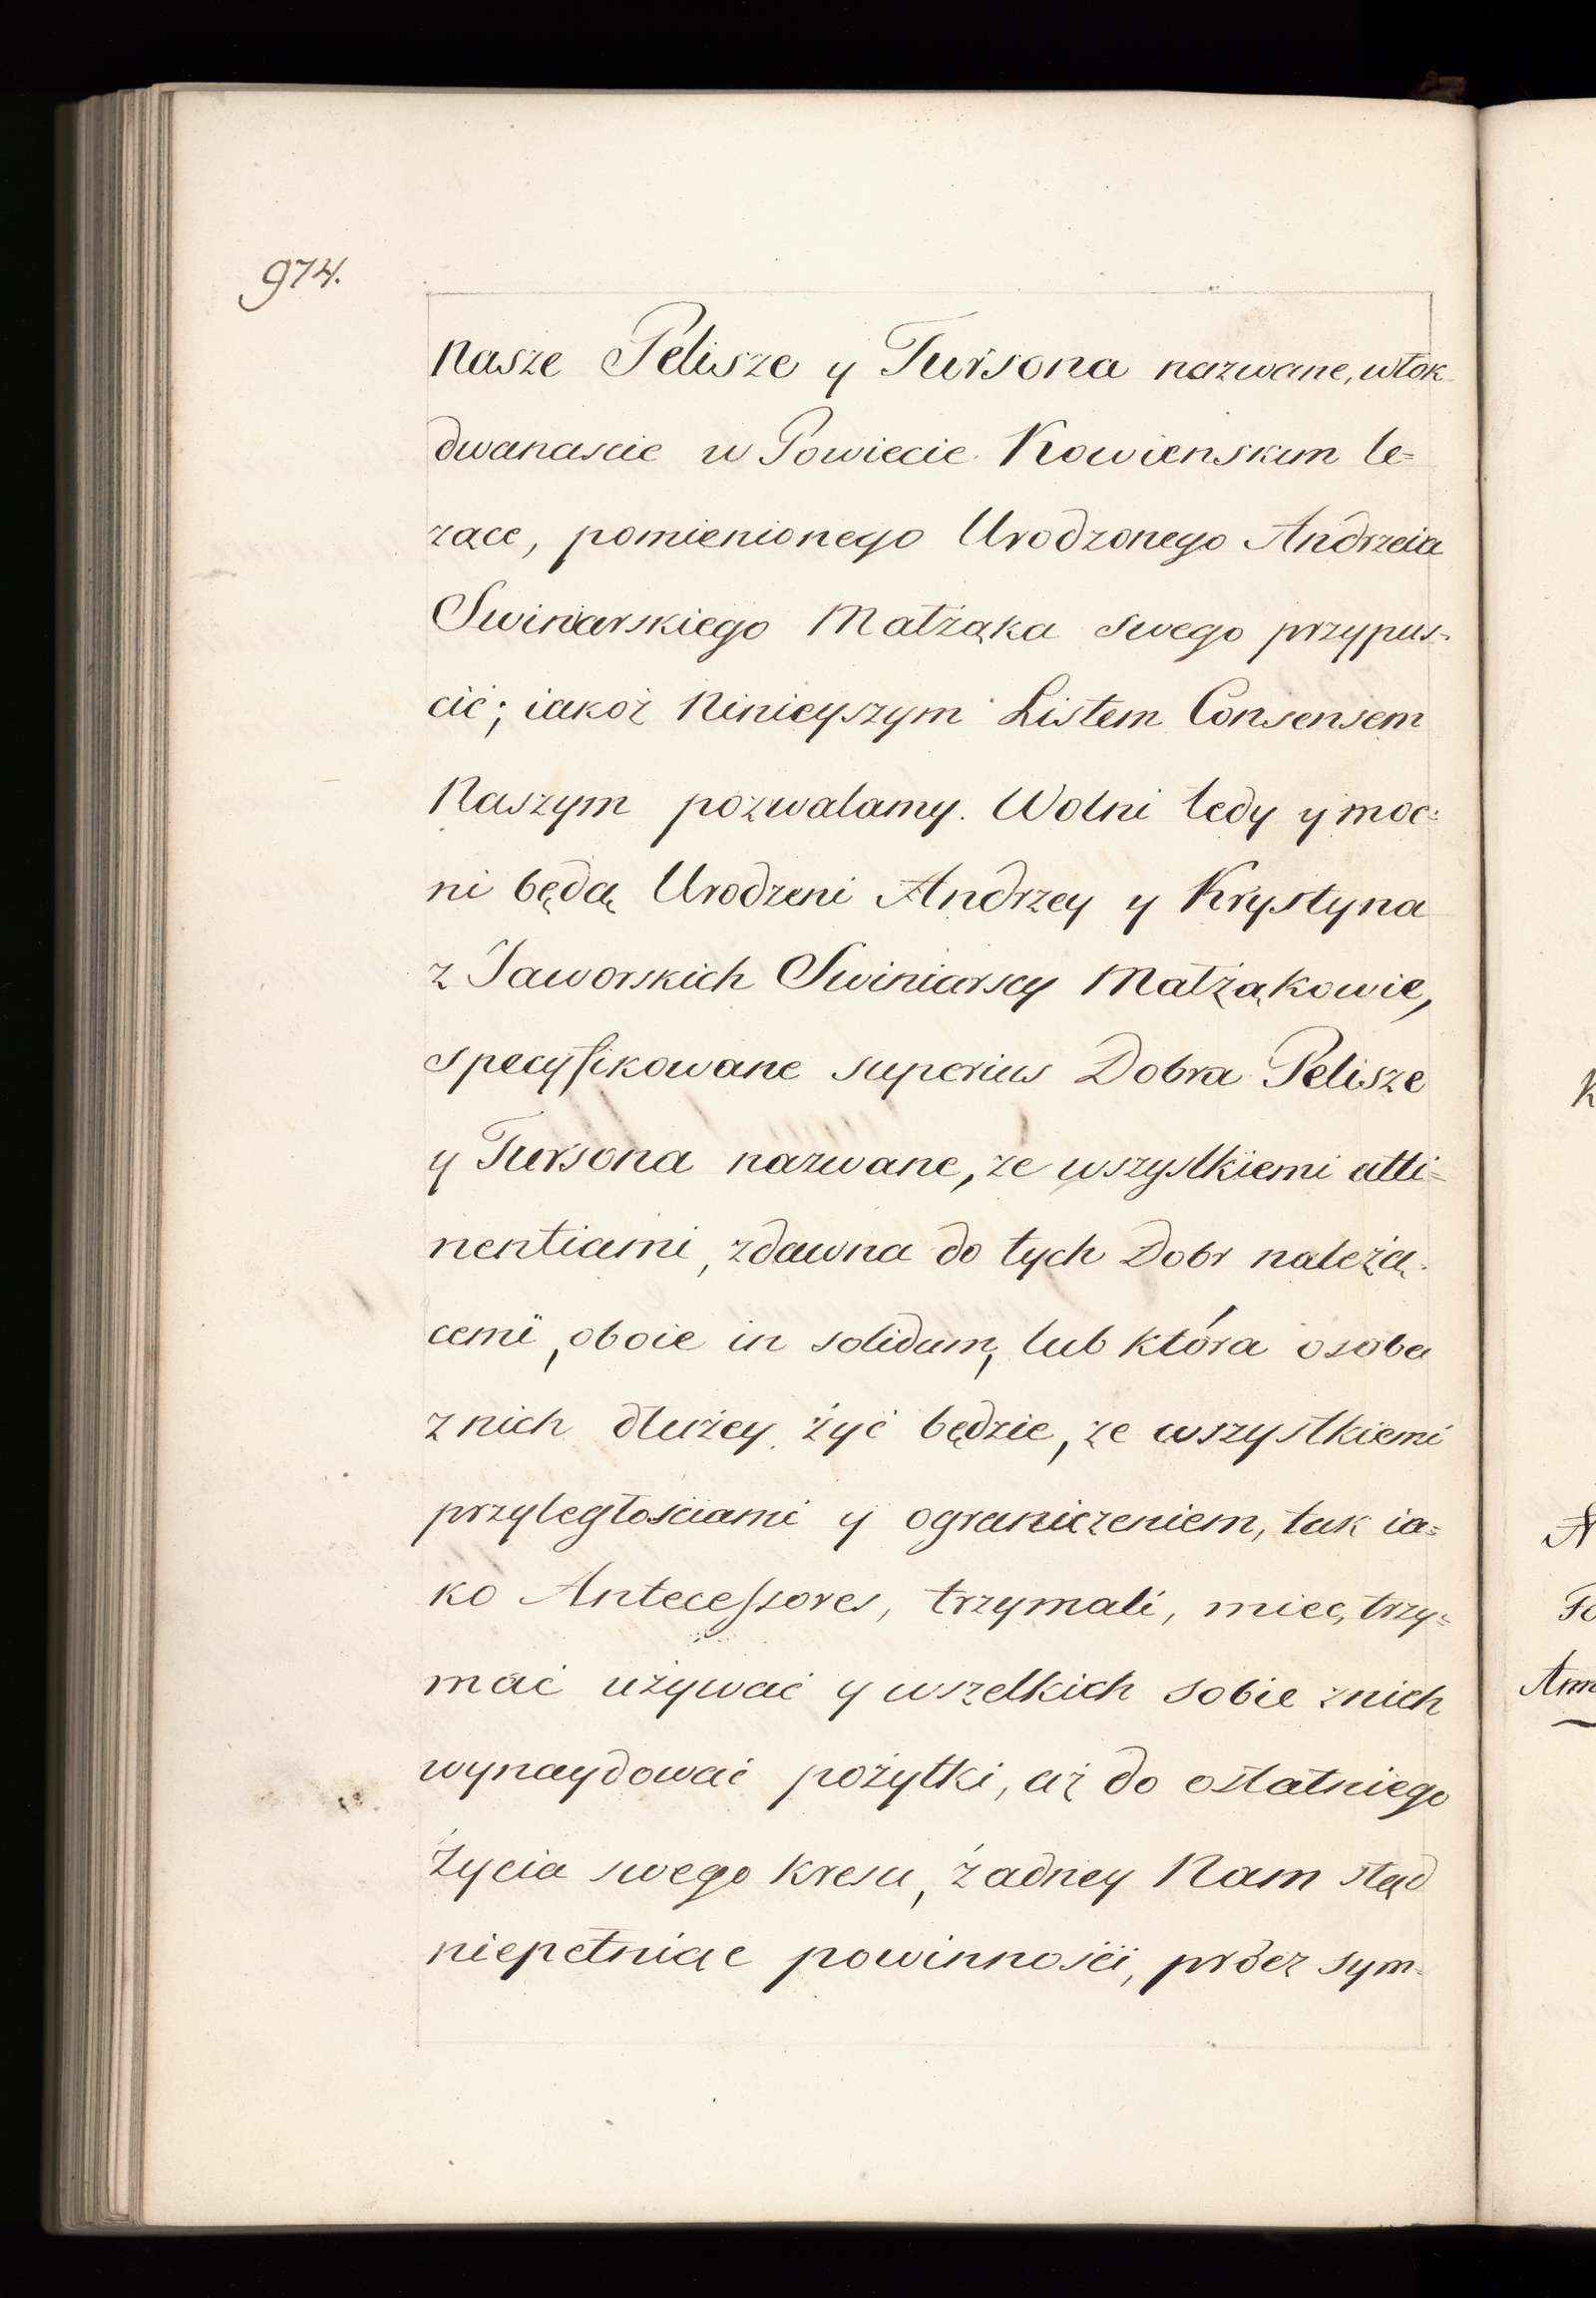 974.
nasze Pelisze y Tursona nazwane, włok
dwanascie w Powiecie Kowienskim le=
zące, pomienionego Urodzonego Andrzeia
Swiniarskiego Małżąka swego przypus-
cić; iakoż Ninieyszym Listem Consensem
Naszym pozwalamy. Wolni tedy y moc=
ni będą Urodzeni Andrzey y Krystyna
z Jaworskich Swiniarscy Małżąkowie,
specyfikowane superius Dobra Pelisze
y Tursona nazwane, ze wszystkiemi atti=
nentiami, zdawna do tych Dobr należą-
cemi, oboie in solidum, lub która osoba
z nich dłużey żyć będzie, ze wszystkiemi
przyległościami y ograniczeniem, tak ia=
ko Antecessores, trzymali, miec, trzy=
mać używać y wszelkich sobie znich
wynaydować pożytki, aż do ostatniego
życia swego kresu, żadney Nam stąd
niepełniąc powinności, prócz sym-
K
A
Fo
Ann